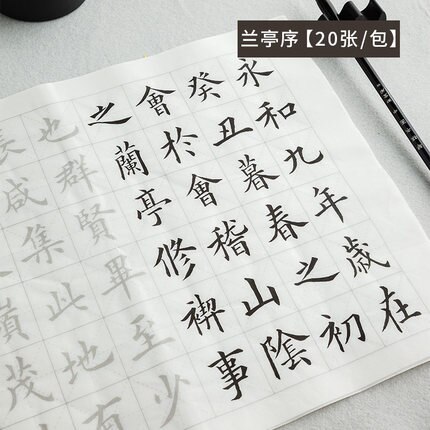 兰亭序【20张/包】
永和九年歲在
癸丑暮春之初
會於會稽山陰
之蘭亭修禊事
也群賢畢至少
長咸集此地有
嶺茂